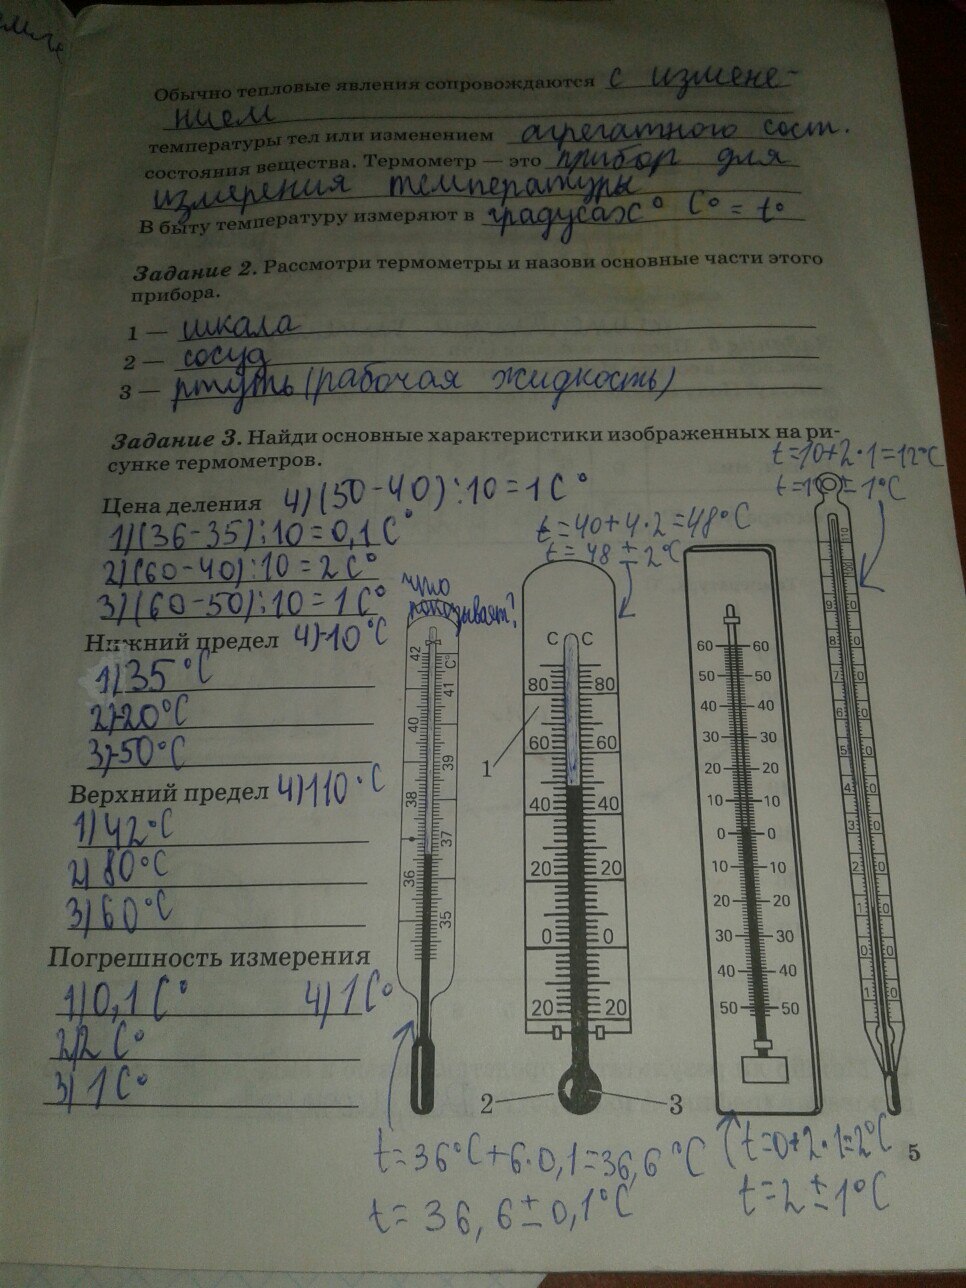 Обычно тепловые явления сопровождаются с измене-
нием
температуры тел или изменением агрегатного сост.
состояния вещества. Термометр — это прибор для
измерения температуры
В быту температуру измеряют в градусах° C° = t°
Задание 2. Рассмотри термометры и назови основные части этого
прибора.
1 — шкала
2 — сосуд
3 — ртуть (рабочая жидкость)
Задание 3. Найди основные характеристики изображенных на ри-
сунке термометров.
t=10+2·1=12°C
± 1°C
Цена деления 4) (50-40):10=1C°
1) (36-35):10=0,1C°
2) (60-40):10=2C°
3) (60-50):10=1C°
t=40+4·2=48°C
t=48 ± 2°C
что
показывает?
Нижний предел 4) -10°C
1) 35°C
2) -20°C
3) -50°C
Верхний предел 4) 110°C
1) 42°C
2) 80°C
3) 60°C
Погрешность измерения
1) 0,1C° 4) 1C°
2) 2C°
3) 1C°
42 C°
41
40
39
38
37
36
35
C C
80 80
60 60
40 40
20 20
0 0
20 20
1
2
3
60 60
50 50
40 40
30 30
20 20
10 10
0 0
10 10
20 20
30 30
40 40
50 50
110
100
9 0
8 0
7 0
6 0
5 0
4 0
3 0
2 0
1 0
0
1 0
t=36°C+6·0,1=36,6°C
t=36,6±0,1°C
t=0+2·1=2°C
t=2±1°C
5